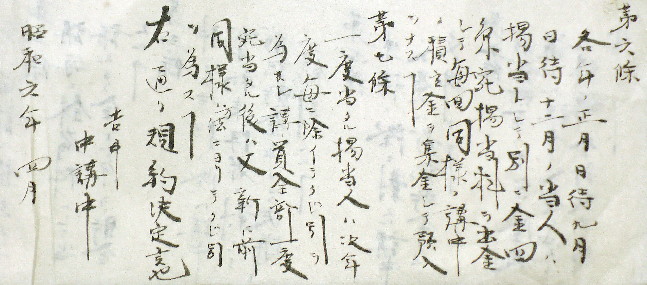 第六條
各年ノ正月日待九月
日待十二月ノ当人ハ
揚当トシテ別ニ金四
シテ毎回同様ニ講中
積立金ヲ集金シテ預入
ヲナス
第七條
一度当タル揚当人ハ次年
度毎ニ除イテクジ引ヲ
為シ講員全部一度
宛当タル後ハ又新ニ前
同様ニクジ引
ヲ為ス
右之通リ規約決定
吉井
中講中
昭和六年四月